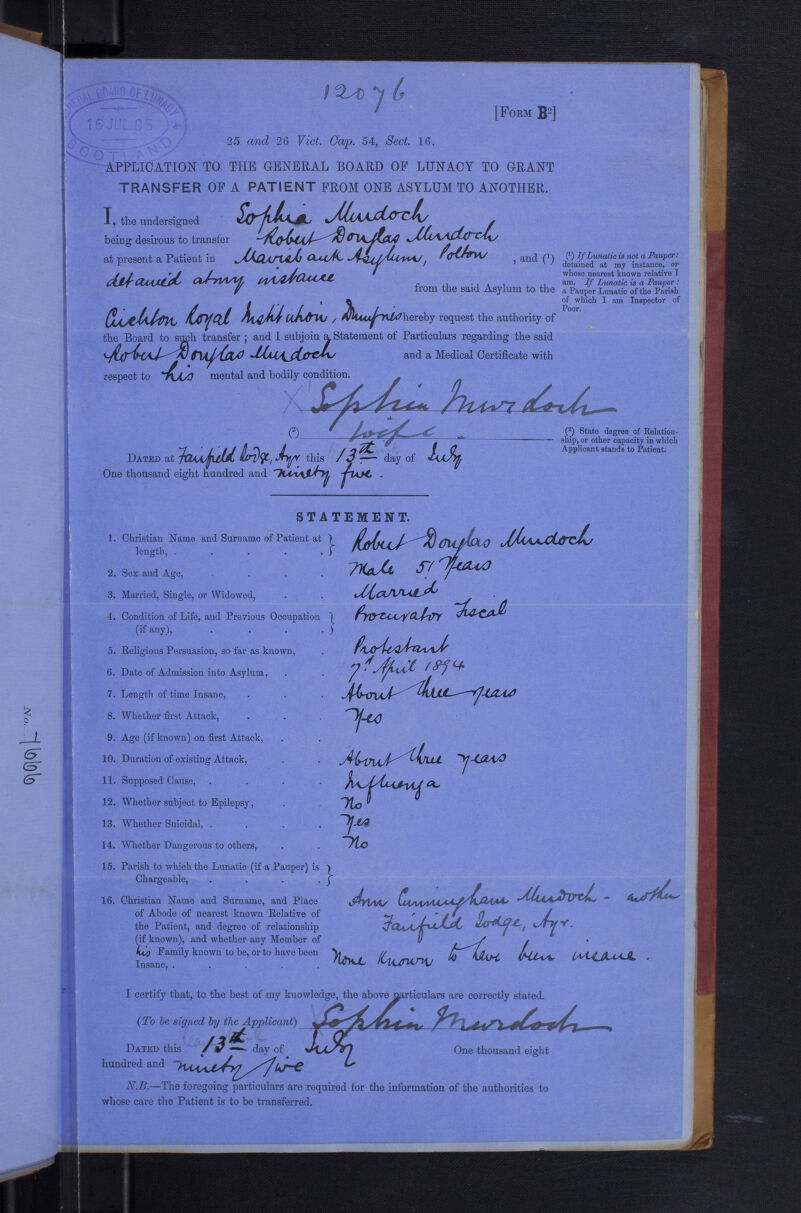 12076
[FORM B²]
GENERAL BOARD OF LUNACY
16 JUL.95
SCOTLAND
25 and 26 Vict. Cap. 54, Sect. 16.
APPLICATION TO THE GENERAL BOARD OF LUNACY TO GRANT
TRANSFER OF A PATIENT FROM ONE ASYLUM TO ANOTHER.
I, the undersigned Sophia Murdoch
being desirous to transfer Robert Douglas Murdoch
at present a Patient in Mavisbank Asylum, Polton, and (¹)
detained at my instance from the said Asylum to the
Crichton Royal Institution, Dumfries hereby request the authority of
the Board to such transfer; and I subjoin a Statement of Particulars regarding the said
Robert Douglas Murdoch and a Medical Certificate with
respect to his mental and bodily condition.
(¹) If Lunatic is not a Pauper:
detained at my instance, or
whose nearest known relative I
am. If Lunatic is a Pauper:
a Pauper Lunatic of the Parish
of which I am Inspector of
Poor.
X Sophia Murdoch
(²) wife
(²) State degree of Relation-
ship, or other capacity in which
Applicant stands to Patient.
DATED at Fairfield Lodge, Ayr this 13th day of July
One thousand eight hundred and ninety five.
STATEMENT.
1. Christian Name and Surname of Patient at length, . . . . . } Robert Douglas Murdoch
2. Sex and Age, . . . . Male 51 Years
3. Married, Single, or Widowed, . . Married
4. Condition of Life, and Previous Occupation (if any), . . . . } Procurator Fiscal
5. Religious Persuasion, so far as known, . Protestant
6. Date of Admission into Asylum, . . 7th April 1894
7. Length of time Insane, . . . About three years
8. Whether first Attack, . . . Yes
9. Age (if known) on first Attack, . .
10. Duration of existing Attack, . . About three years
11. Supposed Cause, . . . . Influenza
12. Whether subject to Epilepsy, . . No
13. Whether Suicidal, . . . . Yes
14. Whether Dangerous to others, . . No
15. Parish to which the Lunatic (if a Pauper) is Chargeable, . . . . . }
16. Christian Name and Surname, and Place Ann Cunningham Murdoch - mother
of Abode of nearest known Relative of Fairfield Lodge, Ayr.
the Patient, and degree of relationship
(if known), and whether any Member of
his Family known to be, or to have been None Known to have been insane.
Insane, . . . . .
I certify that, to the best of my knowledge, the above particulars are correctly stated.
(To be signed by the Applicant) Sophia Murdoch
DATED this 13th day of July One thousand eight
hundred and ninety five
N.B.—The foregoing particulars are required for the information of the authorities to
whose care the Patient is to be transferred.
No. 7666